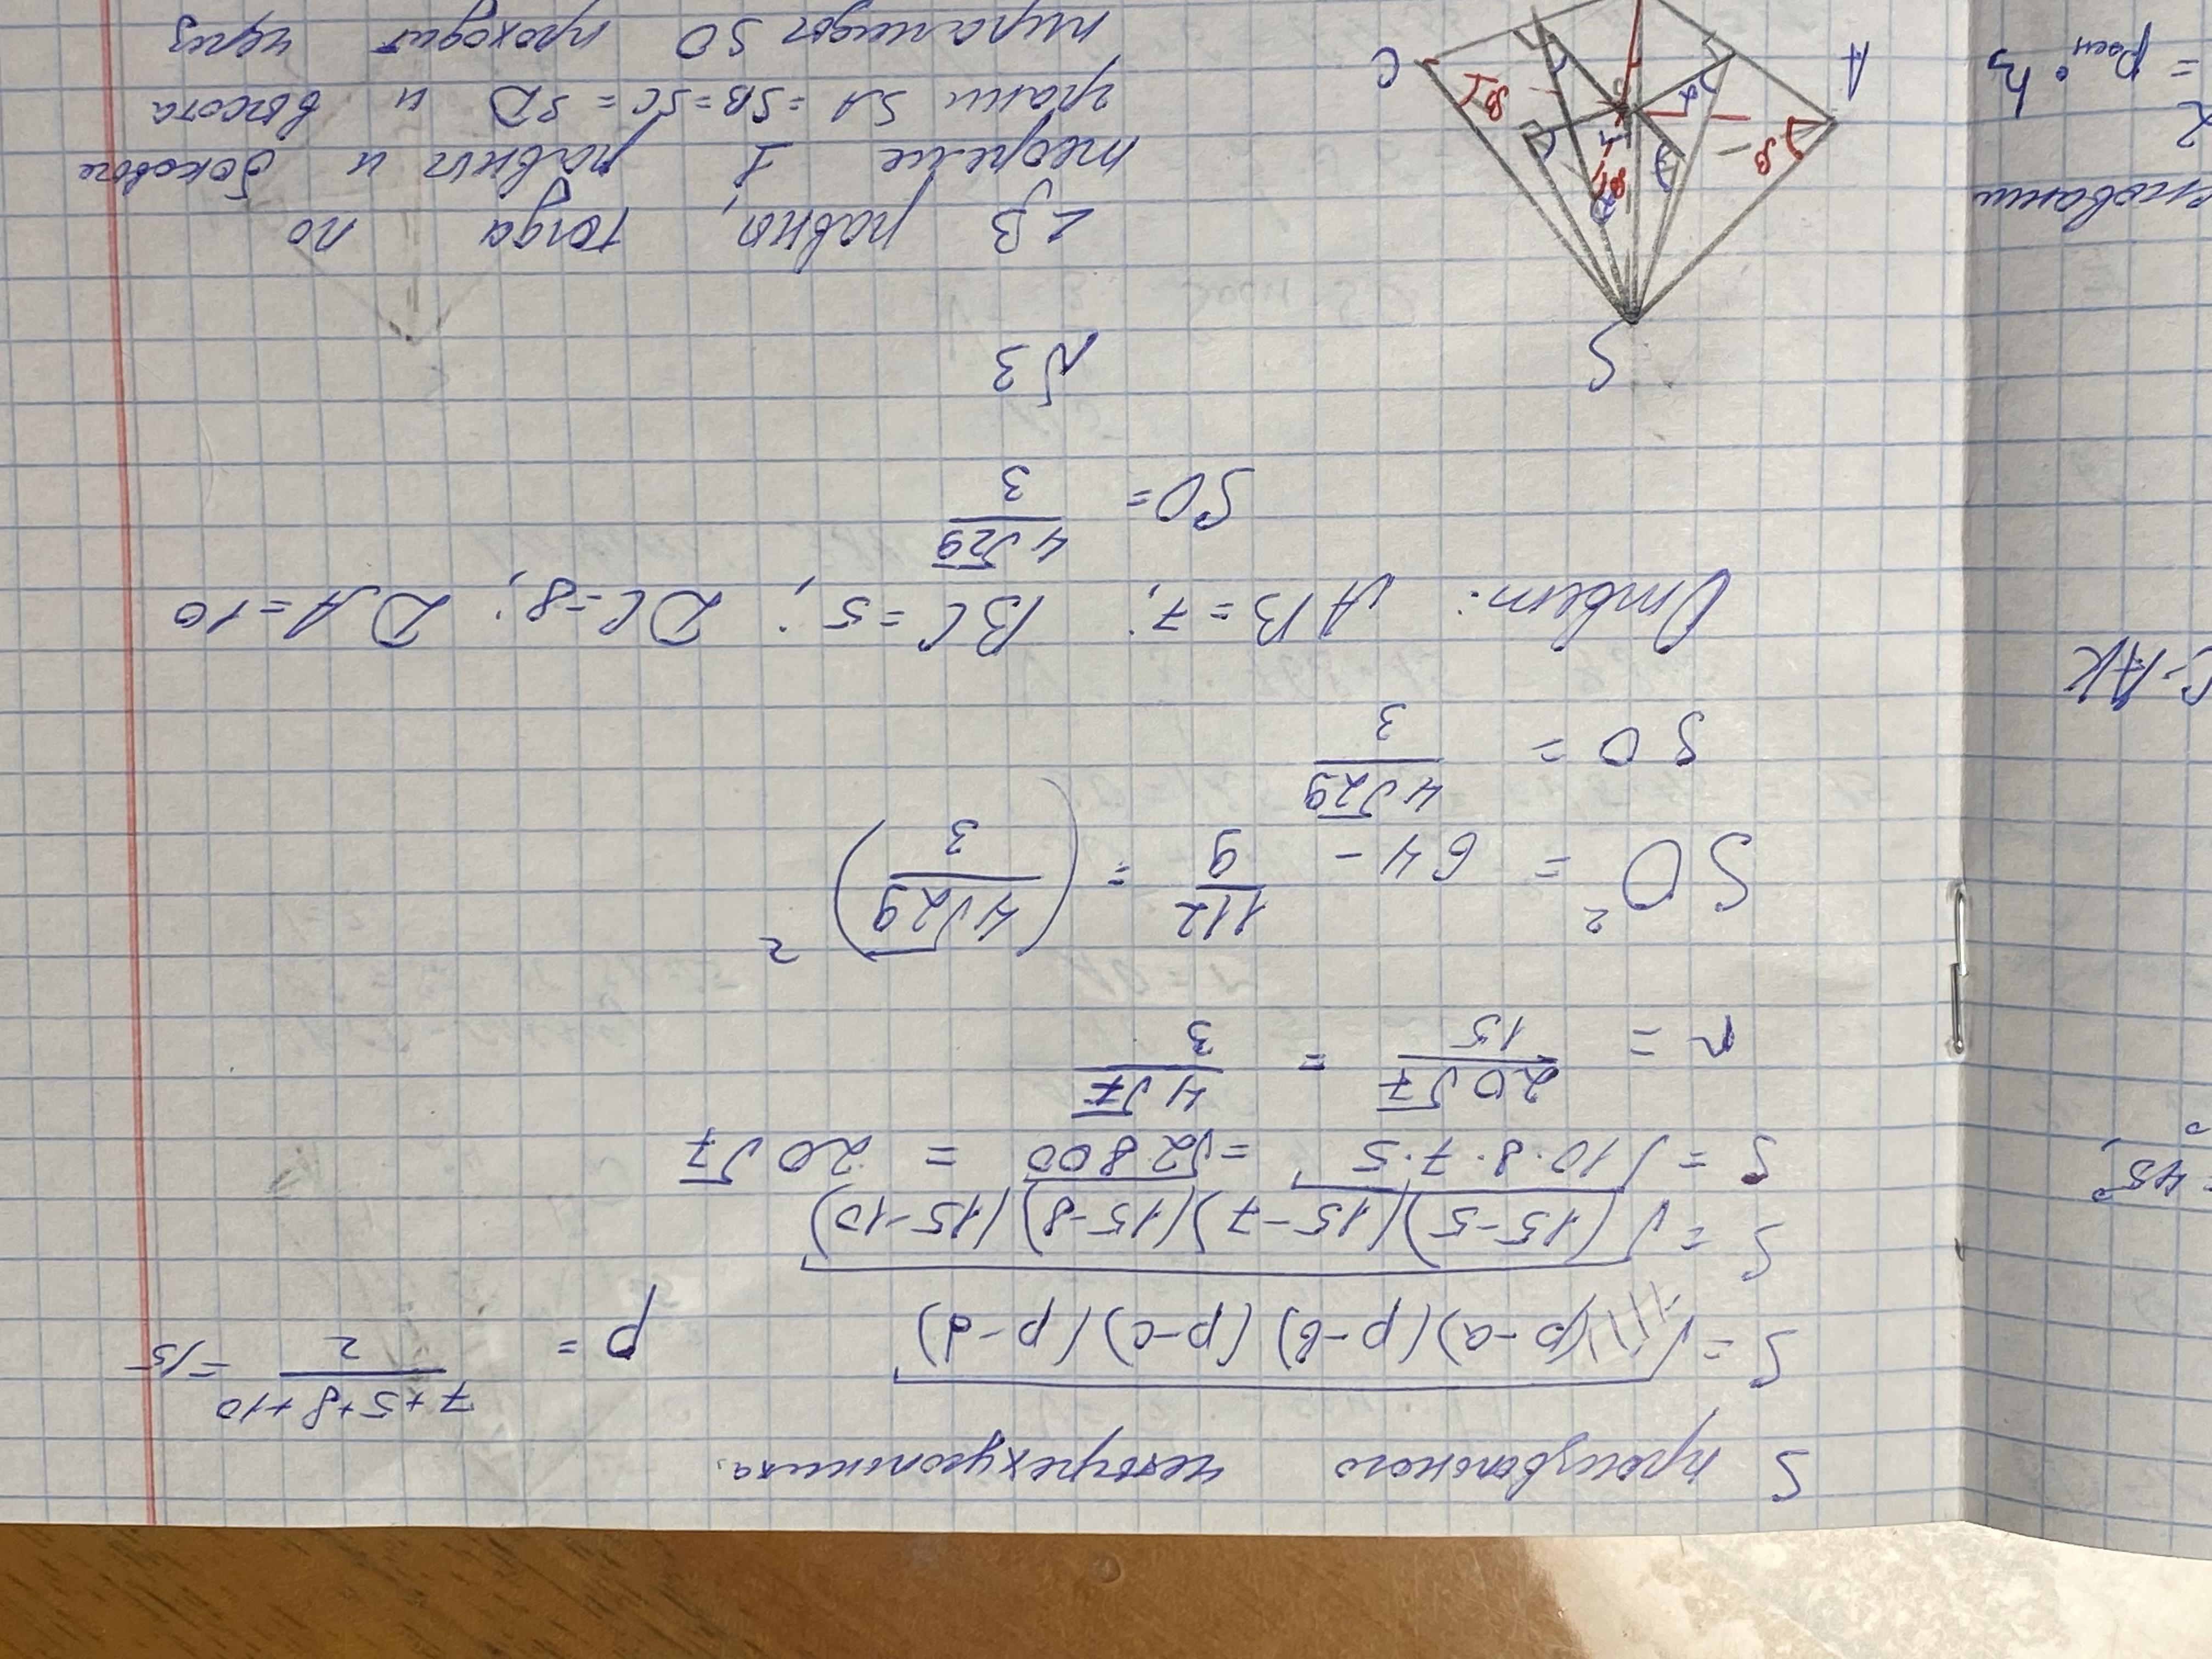 S произвольного четырехугольника.
S = √(p-a)(p-b)(p-c)(p-d) p = (7+5+8+10)/2 = 15
S = √(15-5)(15-7)(15-8)(15-10)
S = √10·8·7·5 = √2800 = 20√7
r = 20√7/15 = 4√7/3
SO² = 64 - 112/9 = (4√29/3)²
SO = 4√29/3
Ответ: AB=7; BC=5; DC=8; DA=10
SO = 4√29/3
№3
S
∠β равны, тогда по
теореме 1 равны и боковые
грани SA = SB = SC = SD и высота
пирамиды SO проходит через
A
C
β
β
β
α
= 45°,
С-АК
= Pосн · h
2